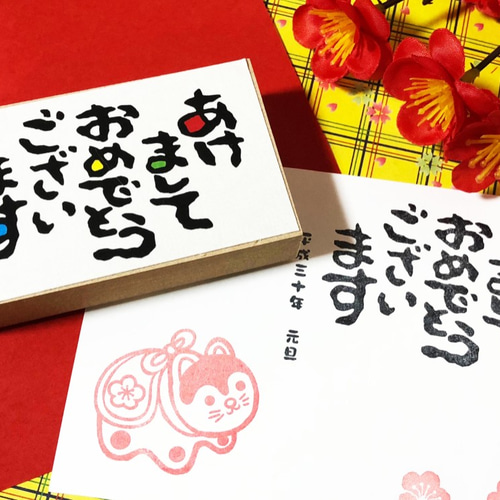 あけ
まして
おめでとう
ござい
ます
おめでとう
ござい
ます
平成三十年 元旦